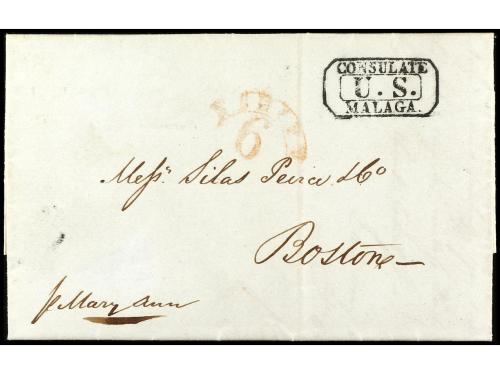 CONSULATE
U. S.
MALAGA.
SHIP
6
Messrs. Silas Peirce & Co
Boston
p Mary Ann